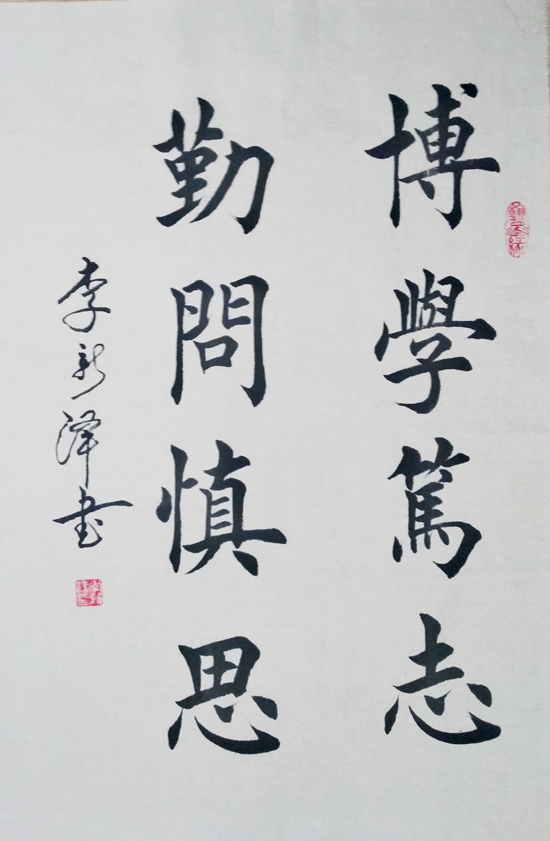 博學篤志
勤問慎思
李新泽书